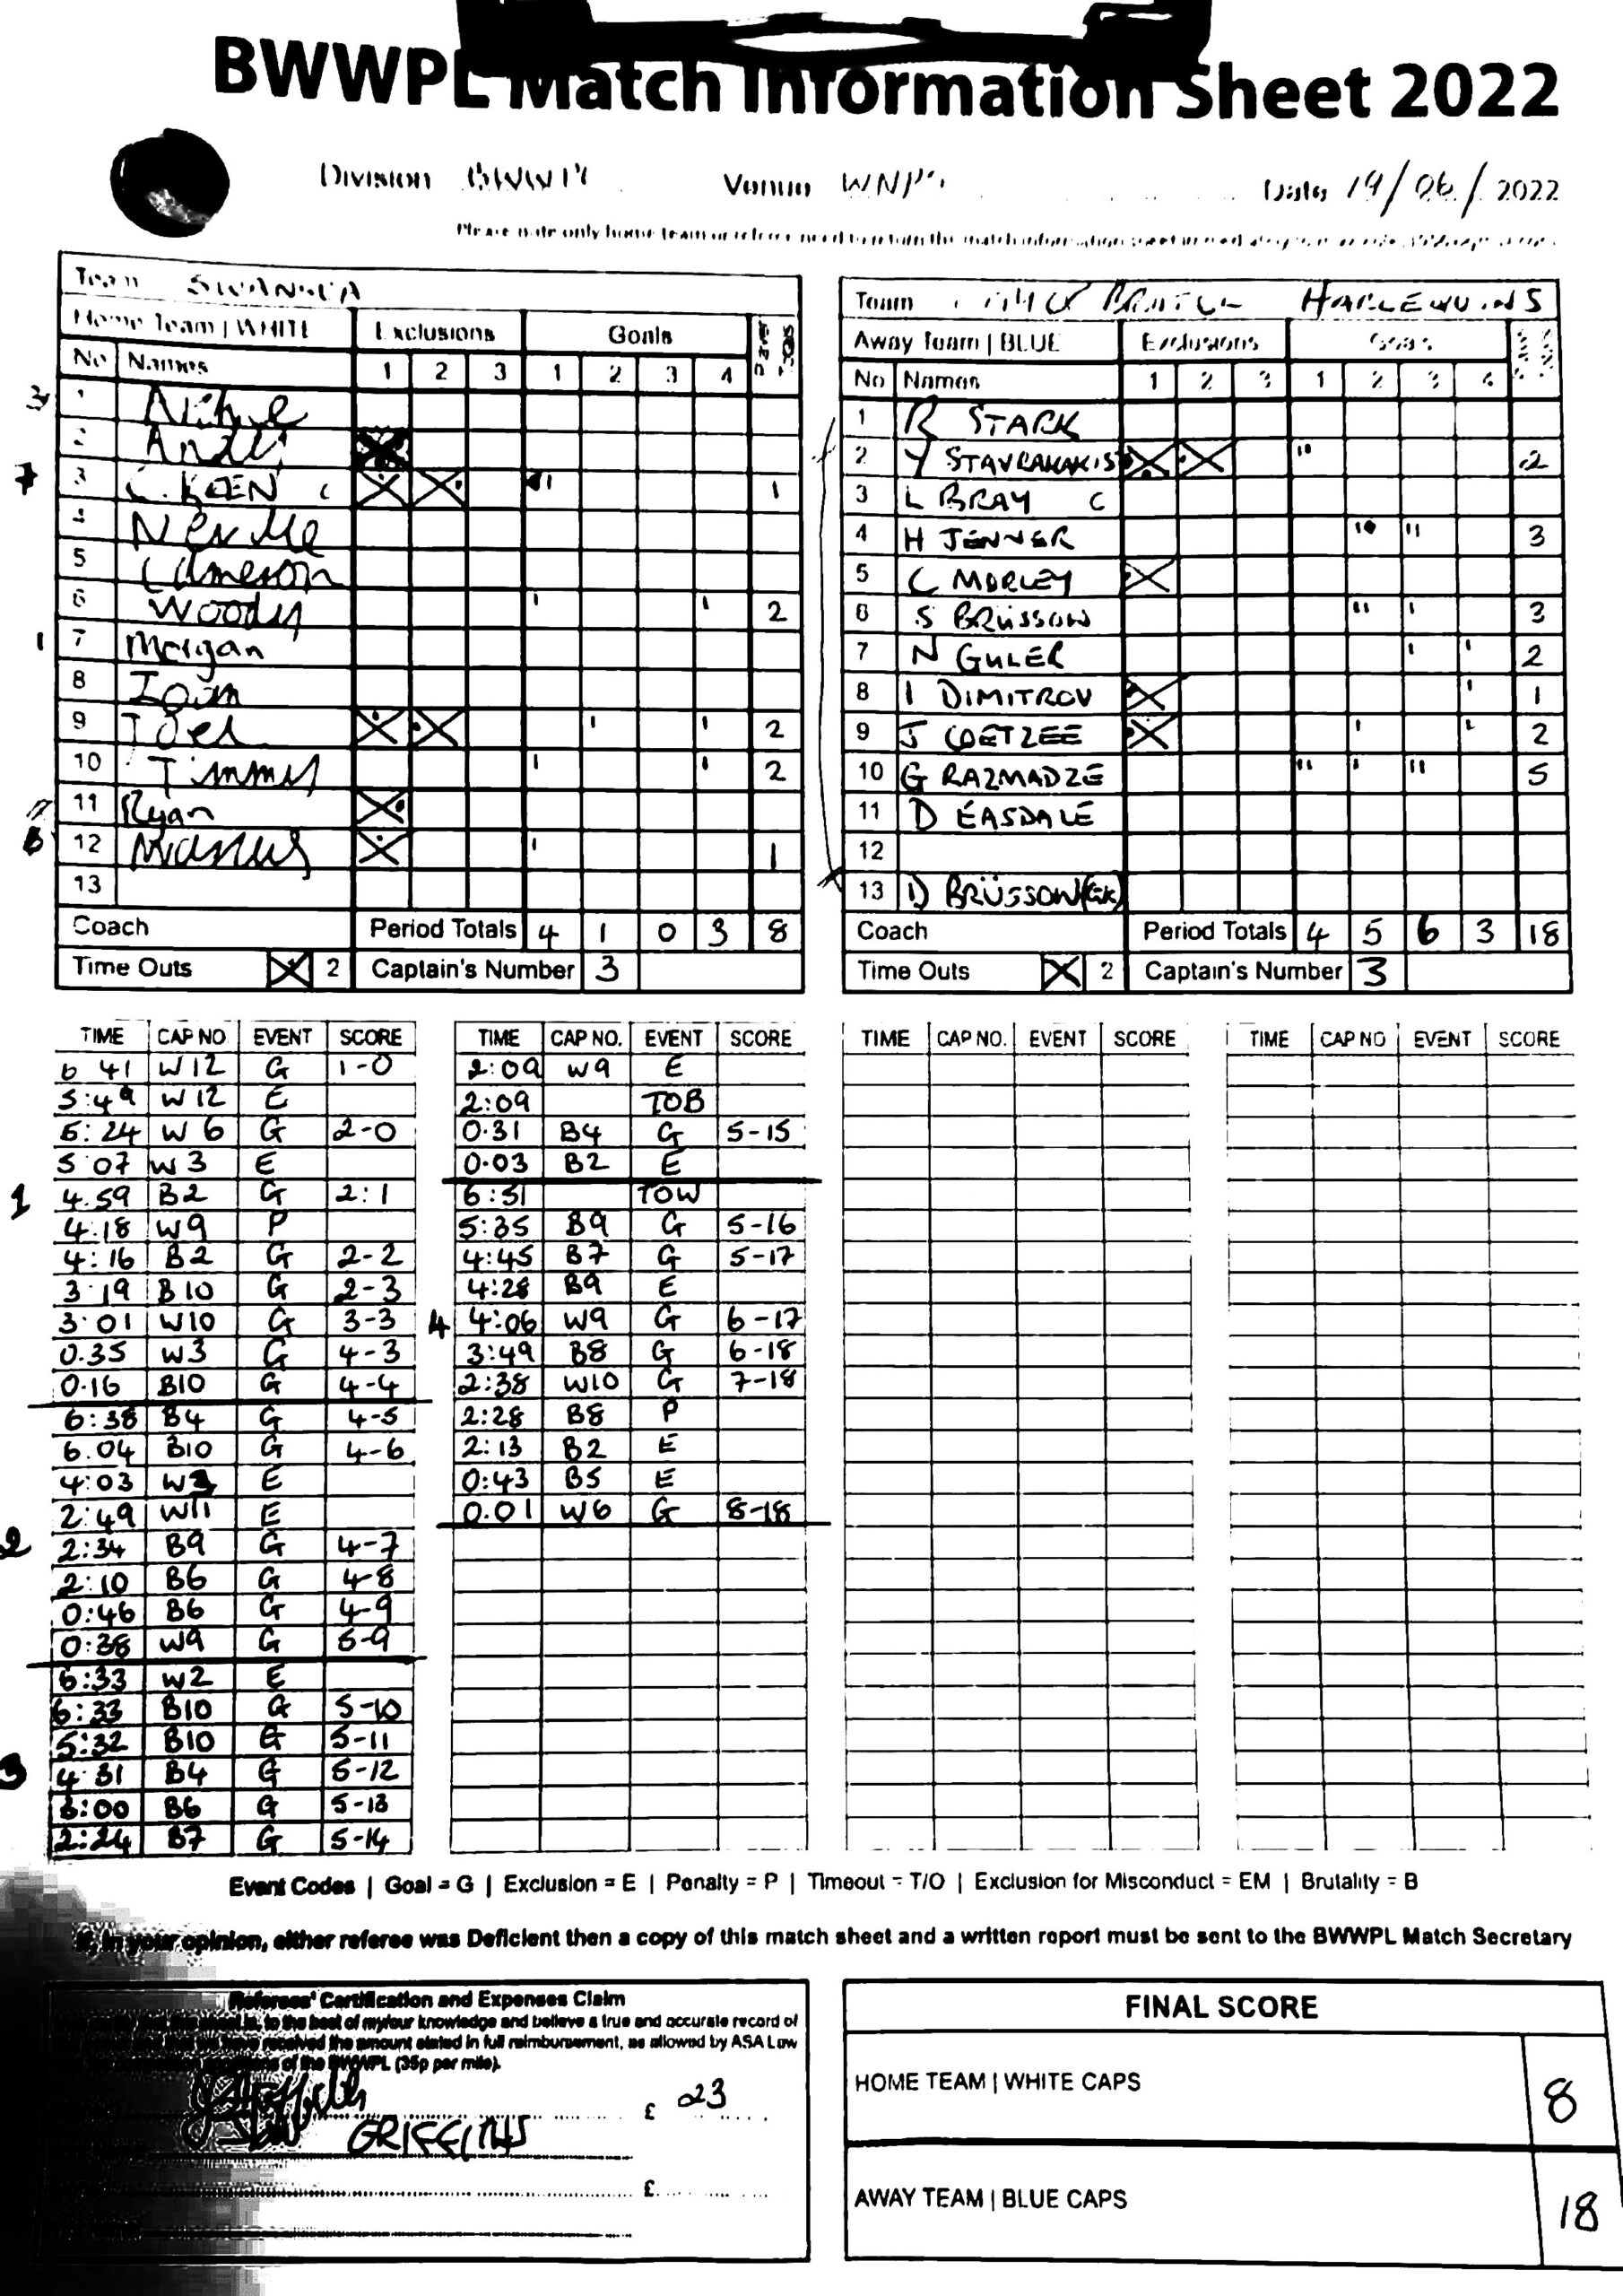 BWWPL Match Information Sheet 2022
Division BWWPL Venue Date 19/06/2022
Team SWANSEA
Home Team | WHITE Exclusions Goals
No Names 1 2 3 1 2 3 4
1
2 Andy
3 C. KEEN C 1
4 Neville
5 Cameron
6 Woody 2
1 7 Morgan
8 Ioan
9 Joel 2
10 Timmy 2
11 Ryan
12 Marcus 1
13
Coach Period Totals 4 1 0 3 8
Time Outs 1 2 Captain's Number 3
Team BRISTOL HARLEQUINS
Away Team | BLUE Exclusions Goals
No Names 1 2 3 1 2 3 4
1 R STARK
2 Y STAVRAKAKIS 2
3 L BRAY C
4 H JENNER 3
5 C MORLEY
6 S BRÜSSOW 3
7 N GULER 2
8 I DIMITROV 1
9 J COETZEE 2
10 G RAZMADZE 5
11 D EASDALE
12
13 D BRÜSSOW (GK)
Coach Period Totals 4 5 6 3 18
Time Outs 1 2 Captain's Number 3
TIME CAP NO EVENT SCORE
6 41 W12 G 1-0
5:49 W12 E
5:24 W6 G 2-0
5 07 W3 E
1 4.59 B2 G 2:1
4:18 W9 P
4:16 B2 G 2-2
3 19 B10 G 2-3
3:01 W10 G 3-3
0.35 W3 G 4-3
0.16 B10 G 4-4
6:38 B4 G 4-5
6.04 B10 G 4-6
4:03 W3 E
2:49 W11 E
2 2:34 B9 G 4-7
2:10 B6 G 4-8
0:46 B6 G 4-9
0:38 W9 G 5-9
6:33 W2 E
6:33 B10 G 5-10
5:32 B10 G 5-11
3 4:31 B4 G 5-12
3:00 B6 G 5-13
2:24 B7 G 5-14
TIME CAP NO. EVENT SCORE
2:09 W9 E
2:09 TOB
0.31 B4 G 5-15
0.03 B2 E
6:51 TOW
5:35 B9 G 5-16
4:45 B7 G 5-17
4:28 B9 E
4 4:06 W9 G 6-17
3:49 B8 G 6-18
2:38 W10 G 7-18
2:28 B8 P
2:13 B2 E
0:43 B5 E
0.01 W6 G 8-18
TIME CAP NO. EVENT SCORE
TIME CAP NO EVENT SCORE
Event Codes | Goal = G | Exclusion = E | Penalty = P | Timeout = T/O | Exclusion for Misconduct = EM | Brutality = B
If, in your opinion, either referee was Deficient then a copy of this match sheet and a written report must be sent to the BWWPL Match Secretary
Referees' Certification and Expenses Claim
to the best of my/our knowledge and believe a true and accurate record of
received the amount stated in full reimbursement, as allowed by ASA Law
of the BWWPL (35p per mile).
£ 23
GRIFFITHS
£
FINAL SCORE
HOME TEAM | WHITE CAPS 8
AWAY TEAM | BLUE CAPS 18